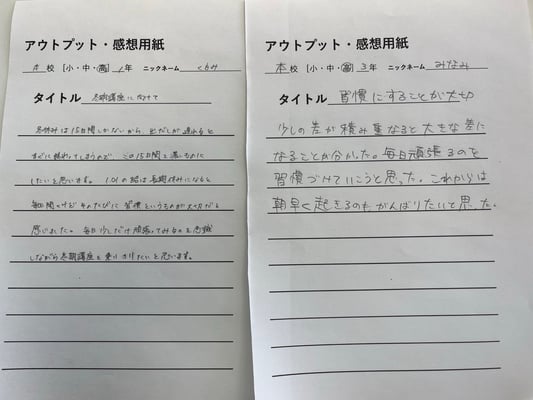 アウトプット・感想用紙
本校 [小・中・高] 1年 ニックネーム くるみ
タイトル 冬期講習に向けて
冬休みは15日間しかないから、出だしが遅れると
すぐに終わってしまうので、この15日間を
したいと思います。 1.01の話は長期休みになると
毎回聞くけど そのたびに 習慣というものが大切だと
感じました。 毎日 少しだけ 頑張ってみるのを意識
しながら冬期講習を乗り切りたいと思います。
アウトプット・感想用紙
本校 [小・中・高] 3年 ニックネーム みなみ
タイトル 習慣にすることが大切
少しの差が積み重なると大きな差に
なることが分かった。毎日頑張るのを
習慣づけていこうと思った。これからは
朝早く起きるのもがんばりたいと思った。